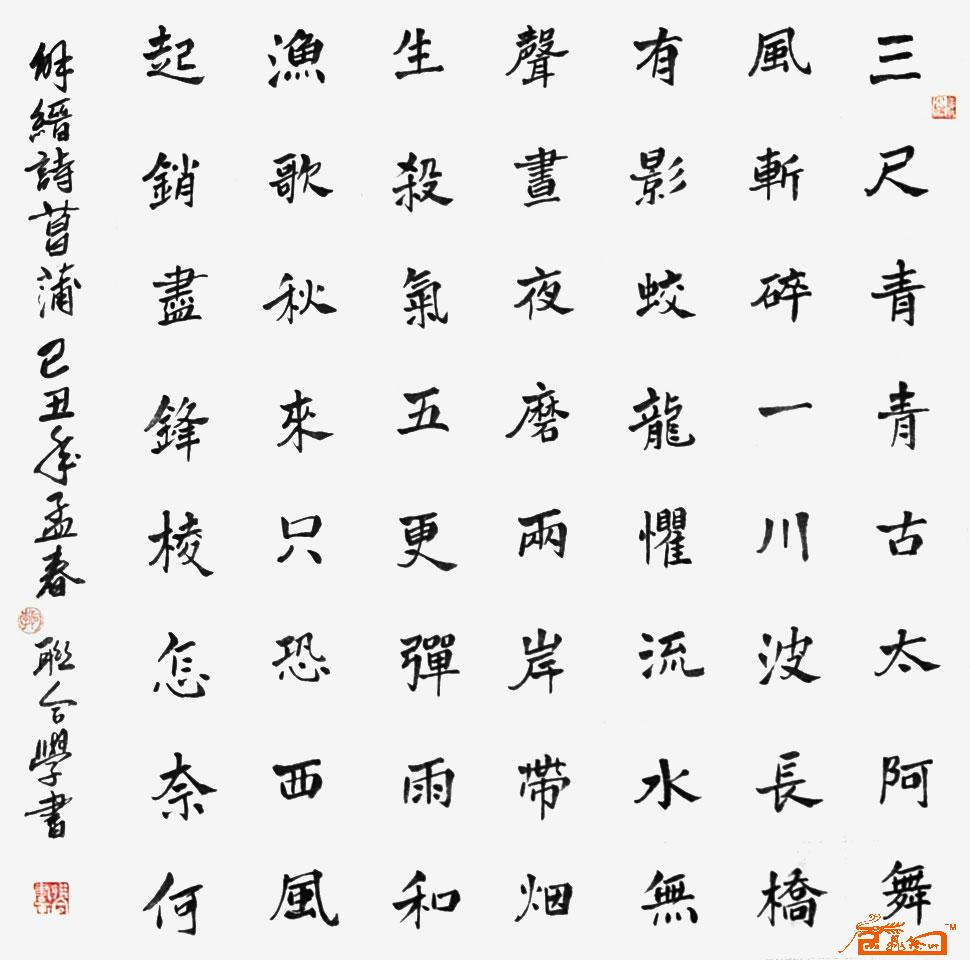 三尺青青古太阿舞
風斬碎一川波長橋
有影蛟龍懼流水無
聲晝夜磨兩岸帶烟
生殺氣五更彈雨和
漁歌秋來只恐西風
起銷盡鋒棱怎奈何
解縉詩菖蒲己丑年孟春聯合學書